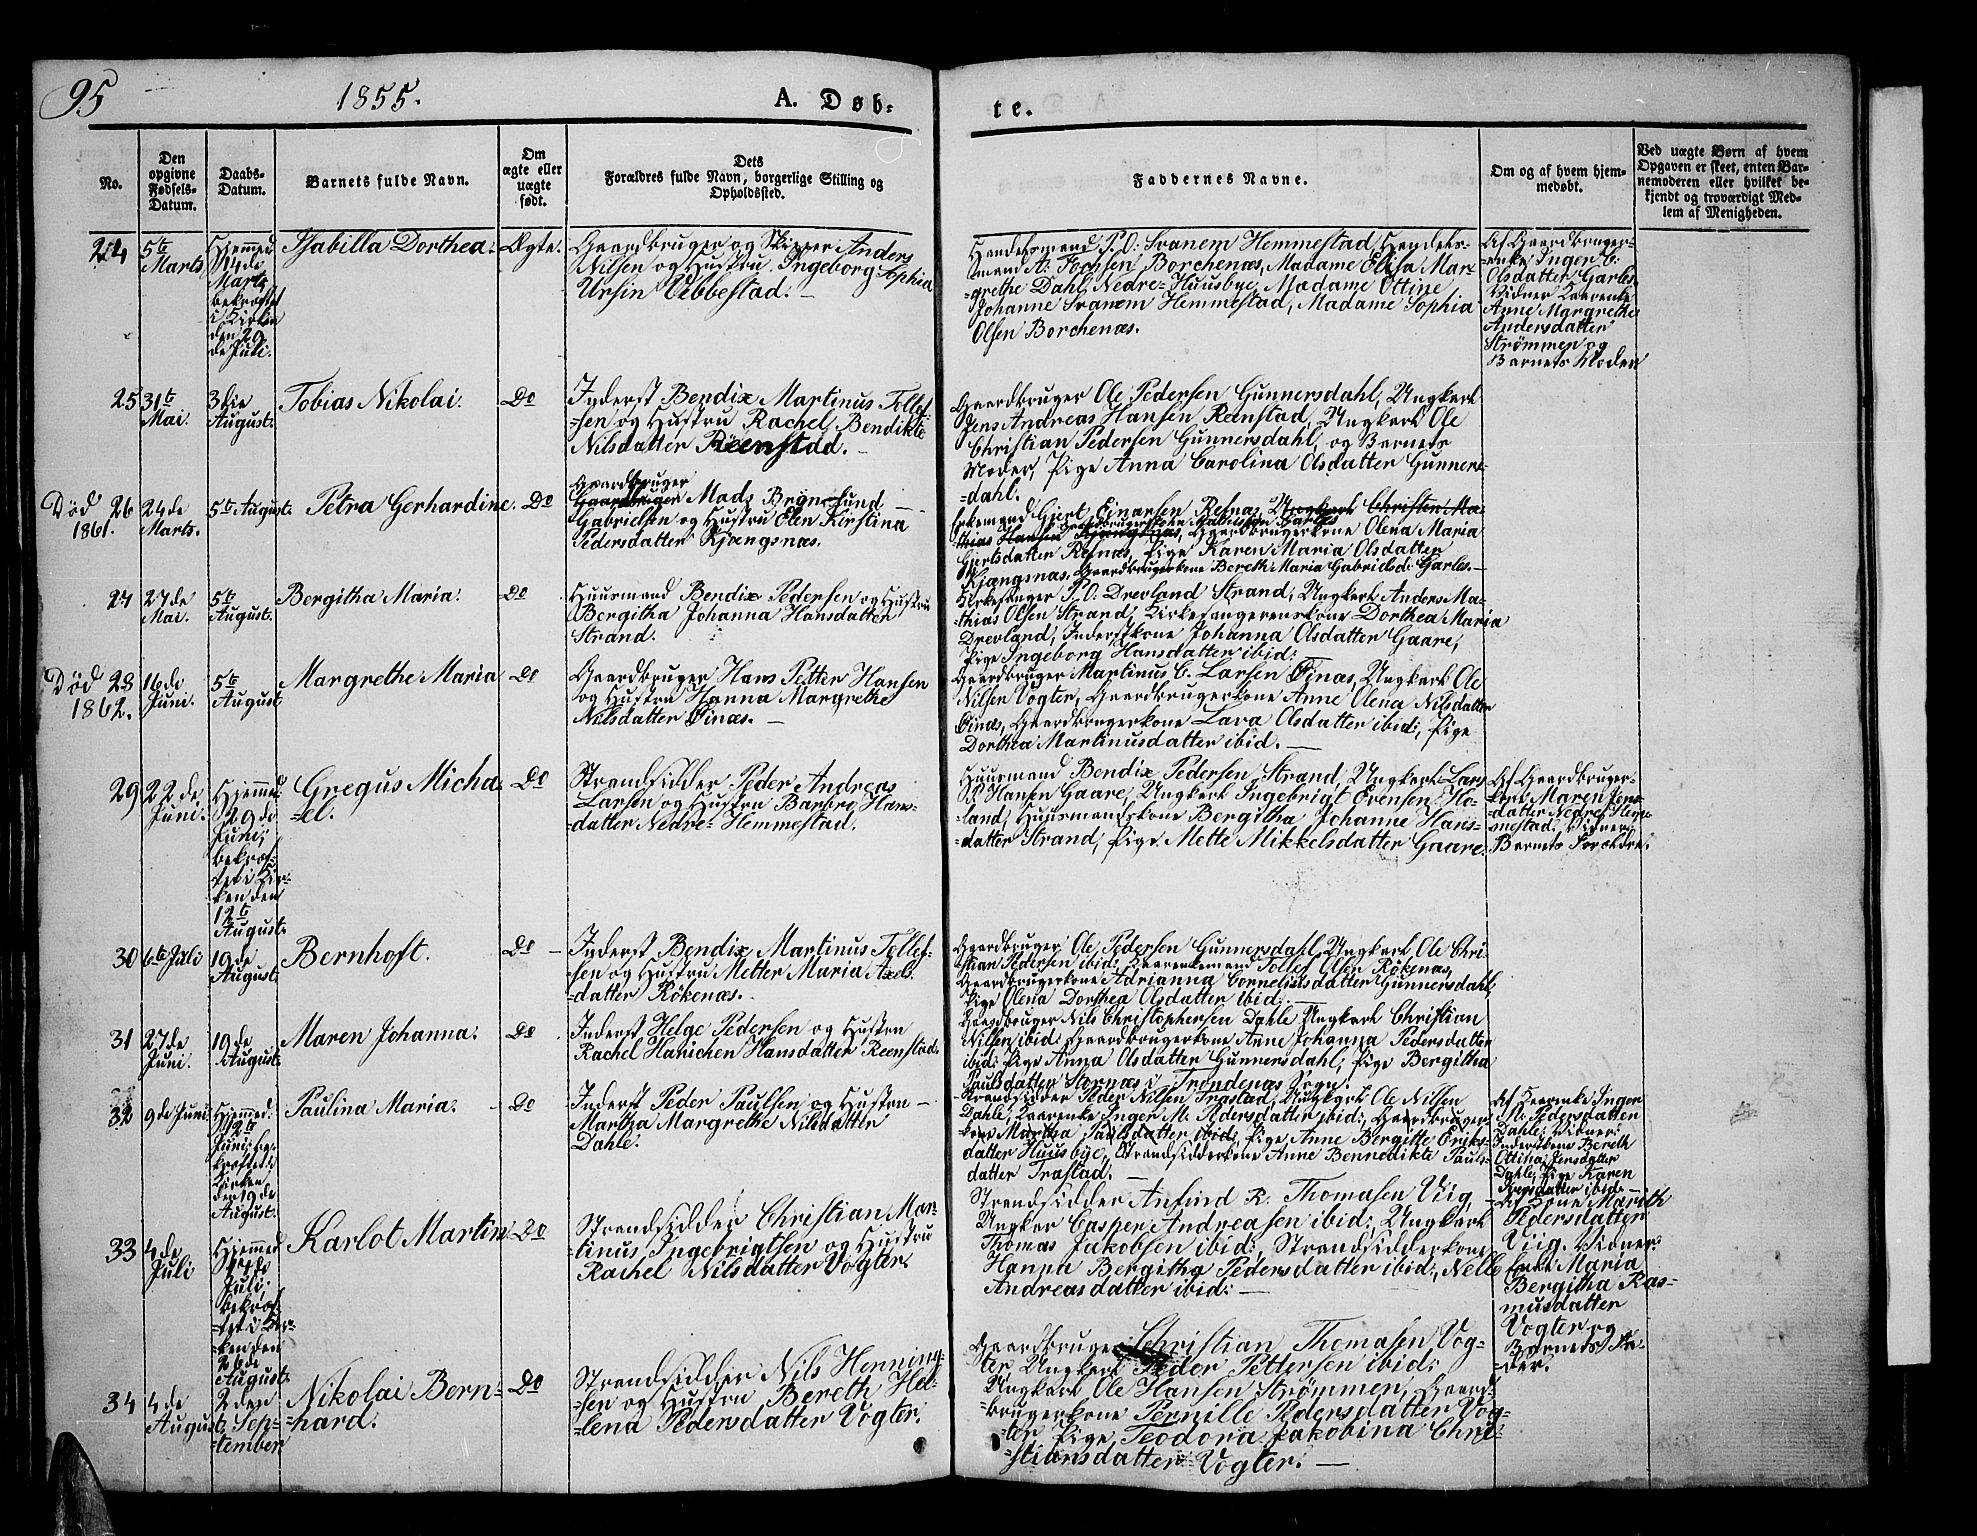 95
1855.
A. Døb-
te.
No.
Den
opgivne
Fødsels-
Datum.
Daabs-
Datum.
Barnets fulde Navn.
Om
ægte eller
uægte
født.
Dets
Forældres fulde Navn, borgerlige Stilling og
Opholdssted.
Faddernes Navne.
Om og af hvem hjem-
medøbt.
Ved uægte Børn af hvem
Opgaven er skeet, enten Bar-
nemoderen eller hvilket be-
kjendt og troværdigt Med-
lem af Menigheden.
24
5te
Marts
Hjemmed
14de
Marts
bekræftet
i Kirken
den 29
de Juli.
Isabilla Dorthea.
Ægte.
Gaardbruger og Skipper Anders
Nilsen og Hustru Ingeborg Sophia
Ursin Vebbestad. —
Handelsmand P. O: Svanem Hemmestad, Handels-
mand A: Fochsen Borchenæs, Madame Elisa Mar-
=grethe Dahl Nedre=Huusbye, Madame Ottine
Johanne Svanem Hemmestad, Madame Sophia
Olsen Borchenæs.
Af Gaardbruger-
=enke Inger C.
Olsdatter Garles
Vidner Kaarenke
Anne Margrethe
Andersdatter
Strømmen og
Barnets Moder
25
31te
Mai.
3die
August.
Tobias Nikolai.
Do
Inderst Bendix Martinus Tollef-
=sen og Hustru Rachel Bendikte
Nilsdatter Reenstad. —
Gaardbruger Ole Pedersen Gunnersdahl, Ungkarl
Jens Andreas Hansen Reenstad, Ungkarl Ole
Christian Pedersen Gunnersdahl, og Barnets
Moder, Pige Anna Carolina Olsdatter Gunners-
=dahl.
Død
1861.
26
24de
Marts.
5te August.
Petra Gerhardine.
Do
Gaardbruger
Gaardbruger Mads Brynslund
Gabrielsen og Hustru Elen Kirstina
Pedersdatter Kjængsnæs.
Enkemand Gjert Einarsen Refsnæs, Ungkarl Christen Ma-
thias Hansen Kjængsnæs, Gaardbrugerkone Olena Maria
Gjertsdatter Refsnæs, Pige Karen Maria Olsdatter
Kjængsnæs, Gaardbrugerkone Bereth Maria Gabrielsd: Garles. —
27
27de
Mai.
5te
August.
Bergitha Maria.
Do
Huusmand Bendix Pedersen og Hustru
Bergitha Johanna Hansdatter
Strand.
Kirkesanger P. O. Drevland Strand, Ungkarl Anders Ma-
=thias Olsen Strand, Kirkesangerenskone Dorthea Maria
Drevland, Inderstkone Johanna Olsdatter Gaare,
Pige Ingeborg Hansdatter ibid: —
Død
1862.
28
16de
Juni.
5te
August
Margrethe Maria
Do
Gaardbruger Hans Petter Hansen
og Hustru Hanna Margrethe
Nilsdatter Øinæs. —
Gaardbruger Martinus C. Larsen Øinæs, Ungkarl Ole
Nilsen Vogter, Gaardbrugerkone Anne Olena Nilsdatter
Øinæs, Gaardbrugerkone Lava Olsdatter ibid:, Pige
Dorthea Martinusdatter ibid. —
29
22de
Juni.
Hjemmed
29de
Juni,
bekræf-
=tet i Kir-
ken den
12te
August.
Gregus Micha
=el.
Do
Strandsidder Peder Andreas
Larsen og Hustru Barbro Hans-
datter Nedre=Hemmestad.
Huusmand Bendix Pedersen Strand, Ungkarl Lars
P. Hansen Gaare, Ungkarl Ingebrigt Evensen Ho-
land, Huusmandskone Bergitha Johanne Hans-
=datter Strand, Pige Mette Mikkelsdatter Gaare.
Af Gaardbruger-
=kone Maren Jens-
=datter Nedre Hem-
mestad. Vidner:
Barnets Forældre.
30
6te Juli
19de
August.
Bernhoft.
Do
Inderst Bendix Martinus Tollef-
=sen og Hustru Metter Maria Axels-
=datter Rökenæs.
Gaardbruger Ole Pedersen Gunnersdahl, Ungkarl Ole Chri-
stian Pedersen ibid: Tollef Olsen Rökenæs,
Gaardbrugerkone Adrianna Corneliusdatter Gunnersdahl,
Pige Olena Dorthea Olsdatter ibid: —
31
27de
Juni.
19de
August.
Maren Johanna.
Do
Inderst Helge Pedersen og Hustru
Rachel Hanichen Hansdatter Reenstad.
Gaardbruger Nils Christophersen Dahle, Ungkarl Christian
Nilsen ibid: Gaardbrugerkone Anne Johanna Pedersdatter
ibid: Pige Anna Olsdatter Gunnersdahl, Pige Bergitha
Paulsdatter Stornæs i Trondenæs Sogn.
32
9de Juni
Hjemmed:
12te
Juni, be-
kræftet i
Kirken
den 19de
August.
Paulina Maria.
Do
Inderst Peder Paulsen og Hustru —
Martha Margrethe Nilsdatter
Dahle.
Strandsidder Peder Nilsen Trastad, Ungkarl Ole Nilsen
Dahle, Kaarenke Inger M. Pedersdatter ibid:, Gaardbruger-
kone Martha Paulsdatter ibid:, Pige Anne Bergitte Eriks-
datter Huusbye, Strandsidderkone Anne Bennedikte Pauls-
datter Trastad. —
Af Kaarenke Inger
M. Pedersdatter
Dahle. Vidner:
Inderstkone Bereth
Ottina Jensdatter
Dahle, Pige Karen
33
4de
Juli
Hjemmed
Juli,
bekræf-
tet i Kir-
ken den
26de
August.
Karlot Martin
Do
Strandsidder Christian Mar-
=tinus Ingebrigtsen og Hustru
Rachel Nilsdatter Vogter.
Strandsidder Anfind R. Thomasen Viig
Ungkar Casper Andreasen ibid:, Ungkarl
Thomas Jakobsen ibid:, Strandsidderkone
Hanna Bergitha Pedersdatter ibid:, Nelle
Andreasdatter ibid: —
Af Kone Mareth
Pedersdatter
Viig. Vidner:
Enke Maria
Bergitha Ras-
musdatter
Vogter og
Barnets Fa-
=der.
34
4de
August
2den
Sep-
=tember
Nikolai Bern-
=hard.
Do
Strandsidder Nils Henning-
=sen og Hustru Bereth Hel-
=lena Pedersdatter Vogter.
Gaardbruger Christian Thomasen Vog-
ter, Ungkarl Peder Pettersen ibid:
Ungkarl Ole Hansen Strømmen, Gaard-
=brugerkone Pernille Pedersdatter Vog-
=ter Pige Teodora Jakobina Chri-
=stiansdatter Vogter. —